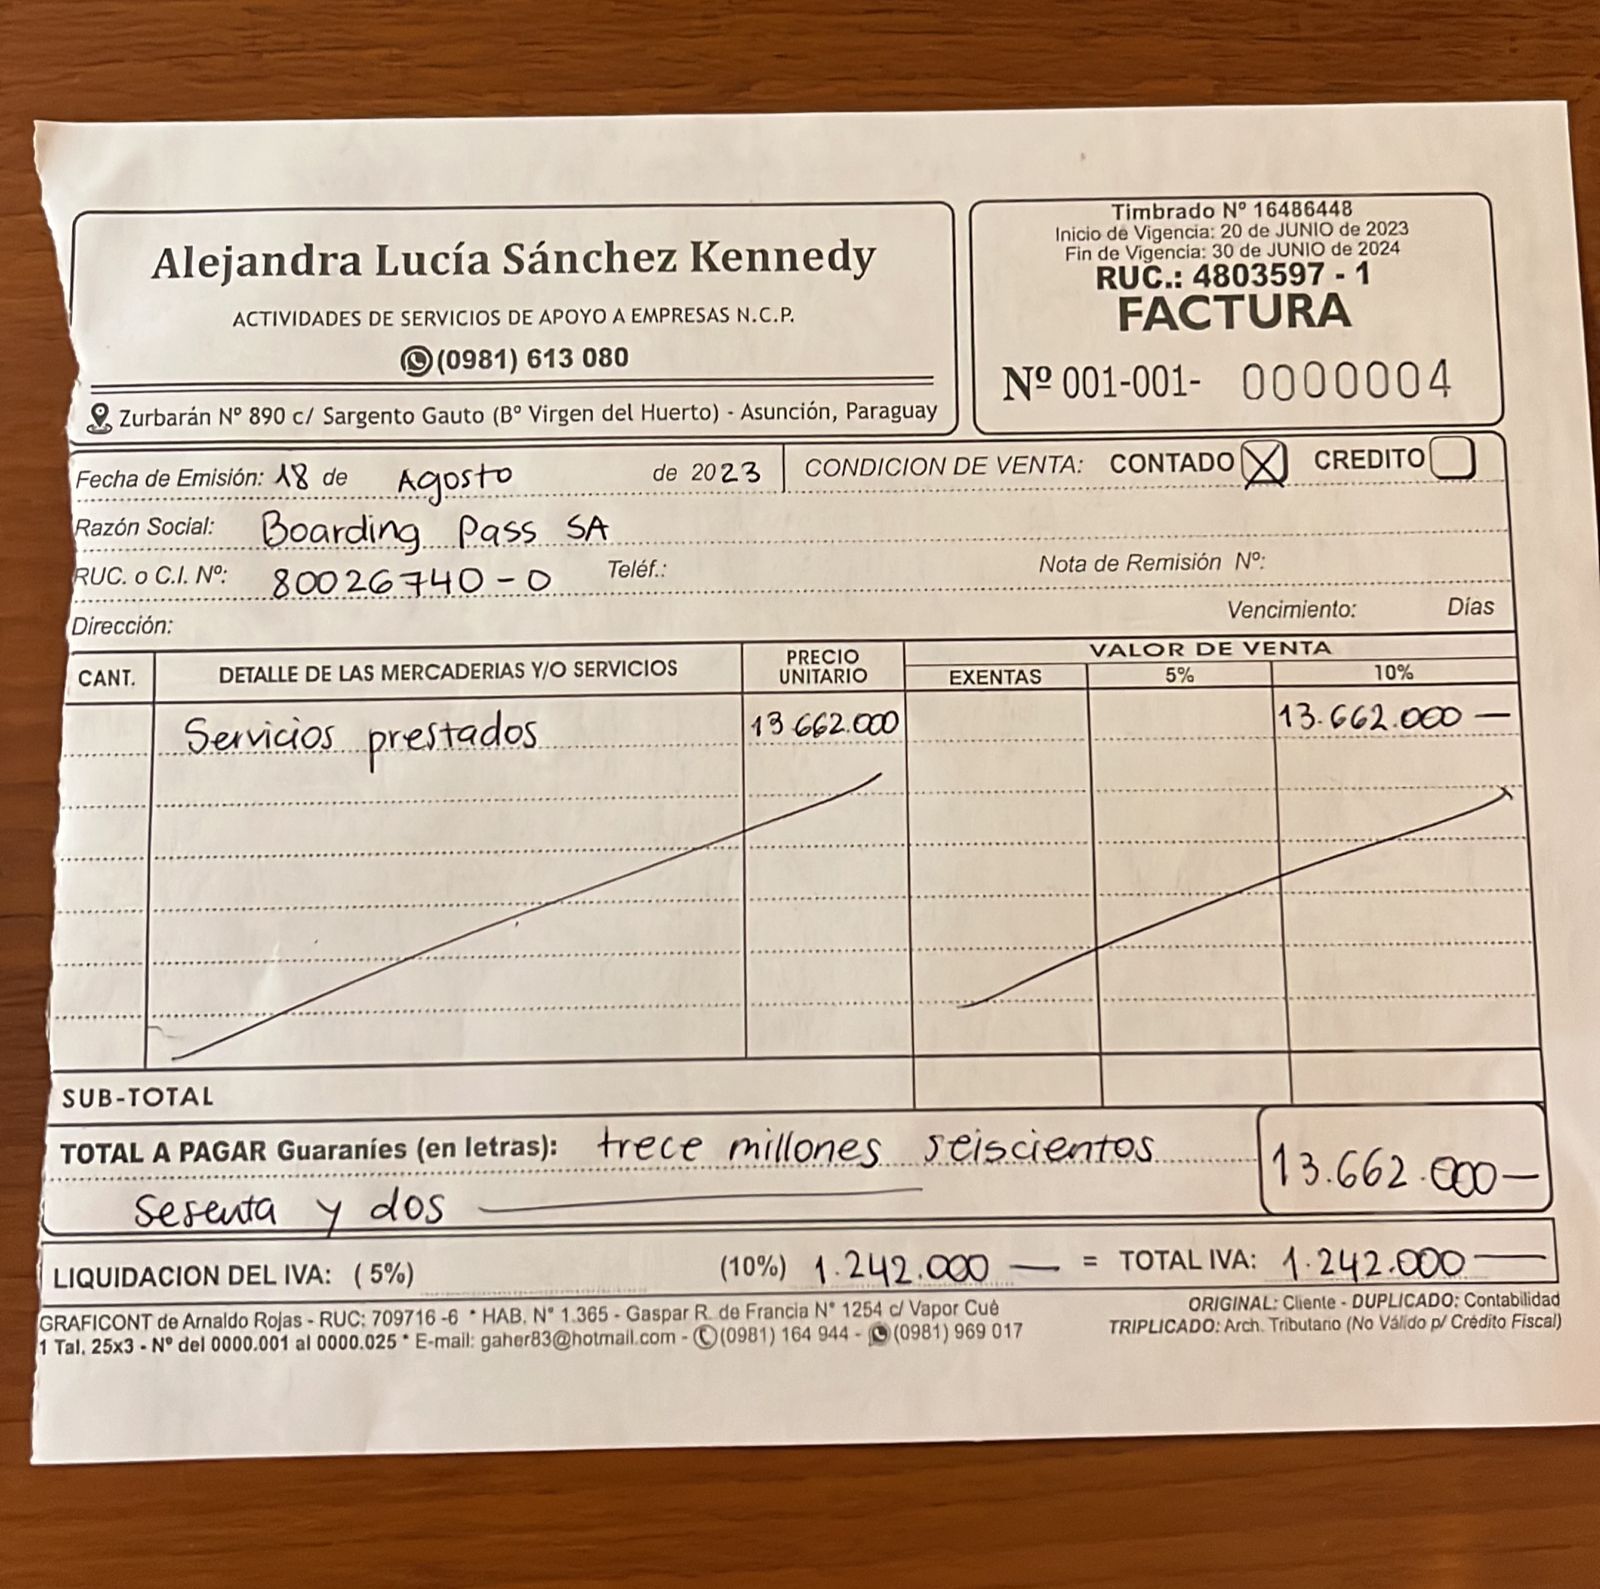 Alejandra Lucía Sánchez Kennedy
ACTIVIDADES DE SERVICIOS DE APOYO A EMPRESAS N.C.P.
(0981) 613 080
Zurbarán Nº 890 c/ Sargento Gauto (Bº Virgen del Huerto) - Asunción, Paraguay
Timbrado Nº 16486448
Inicio de Vigencia: 20 de JUNIO de 2023
Fin de Vigencia: 30 de JUNIO de 2024
RUC.: 4803597 - 1
FACTURA
Nº 001-001- 0000004
Fecha de Emisión: 18 de Agosto de 2023 CONDICION DE VENTA: CONTADO X CREDITO
Razón Social: Boarding Pass SA
RUC. o C.I. Nº: 80026740-0 Teléf.: Nota de Remisión Nº:
Dirección: Vencimiento: Días
CANT. DETALLE DE LAS MERCADERIAS Y/O SERVICIOS PRECIO UNITARIO VALOR DE VENTA
EXENTAS 5% 10%
Servicios prestados 13 662.000 13.662.000 —
SUB-TOTAL
TOTAL A PAGAR Guaraníes (en letras): trece millones seiscientos 13.662.000—
sesenta y dos —
LIQUIDACION DEL IVA: (5%) (10%) 1.242.000 — = TOTAL IVA: 1.242.000 —
GRAFICONT de Arnaldo Rojas - RUC: 709716 -6 * HAB. Nº 1.365 - Gaspar R. de Francia Nº 1254 c/ Vapor Cué
1 Tal. 25x3 - Nº del 0000.001 al 0000.025 * E-mail: gaher83@hotmail.com - (0981) 164 944 - (0981) 969 017
ORIGINAL: Cliente - DUPLICADO: Contabilidad
TRIPLICADO: Arch. Tributario (No Válido p/ Crédito Fiscal)